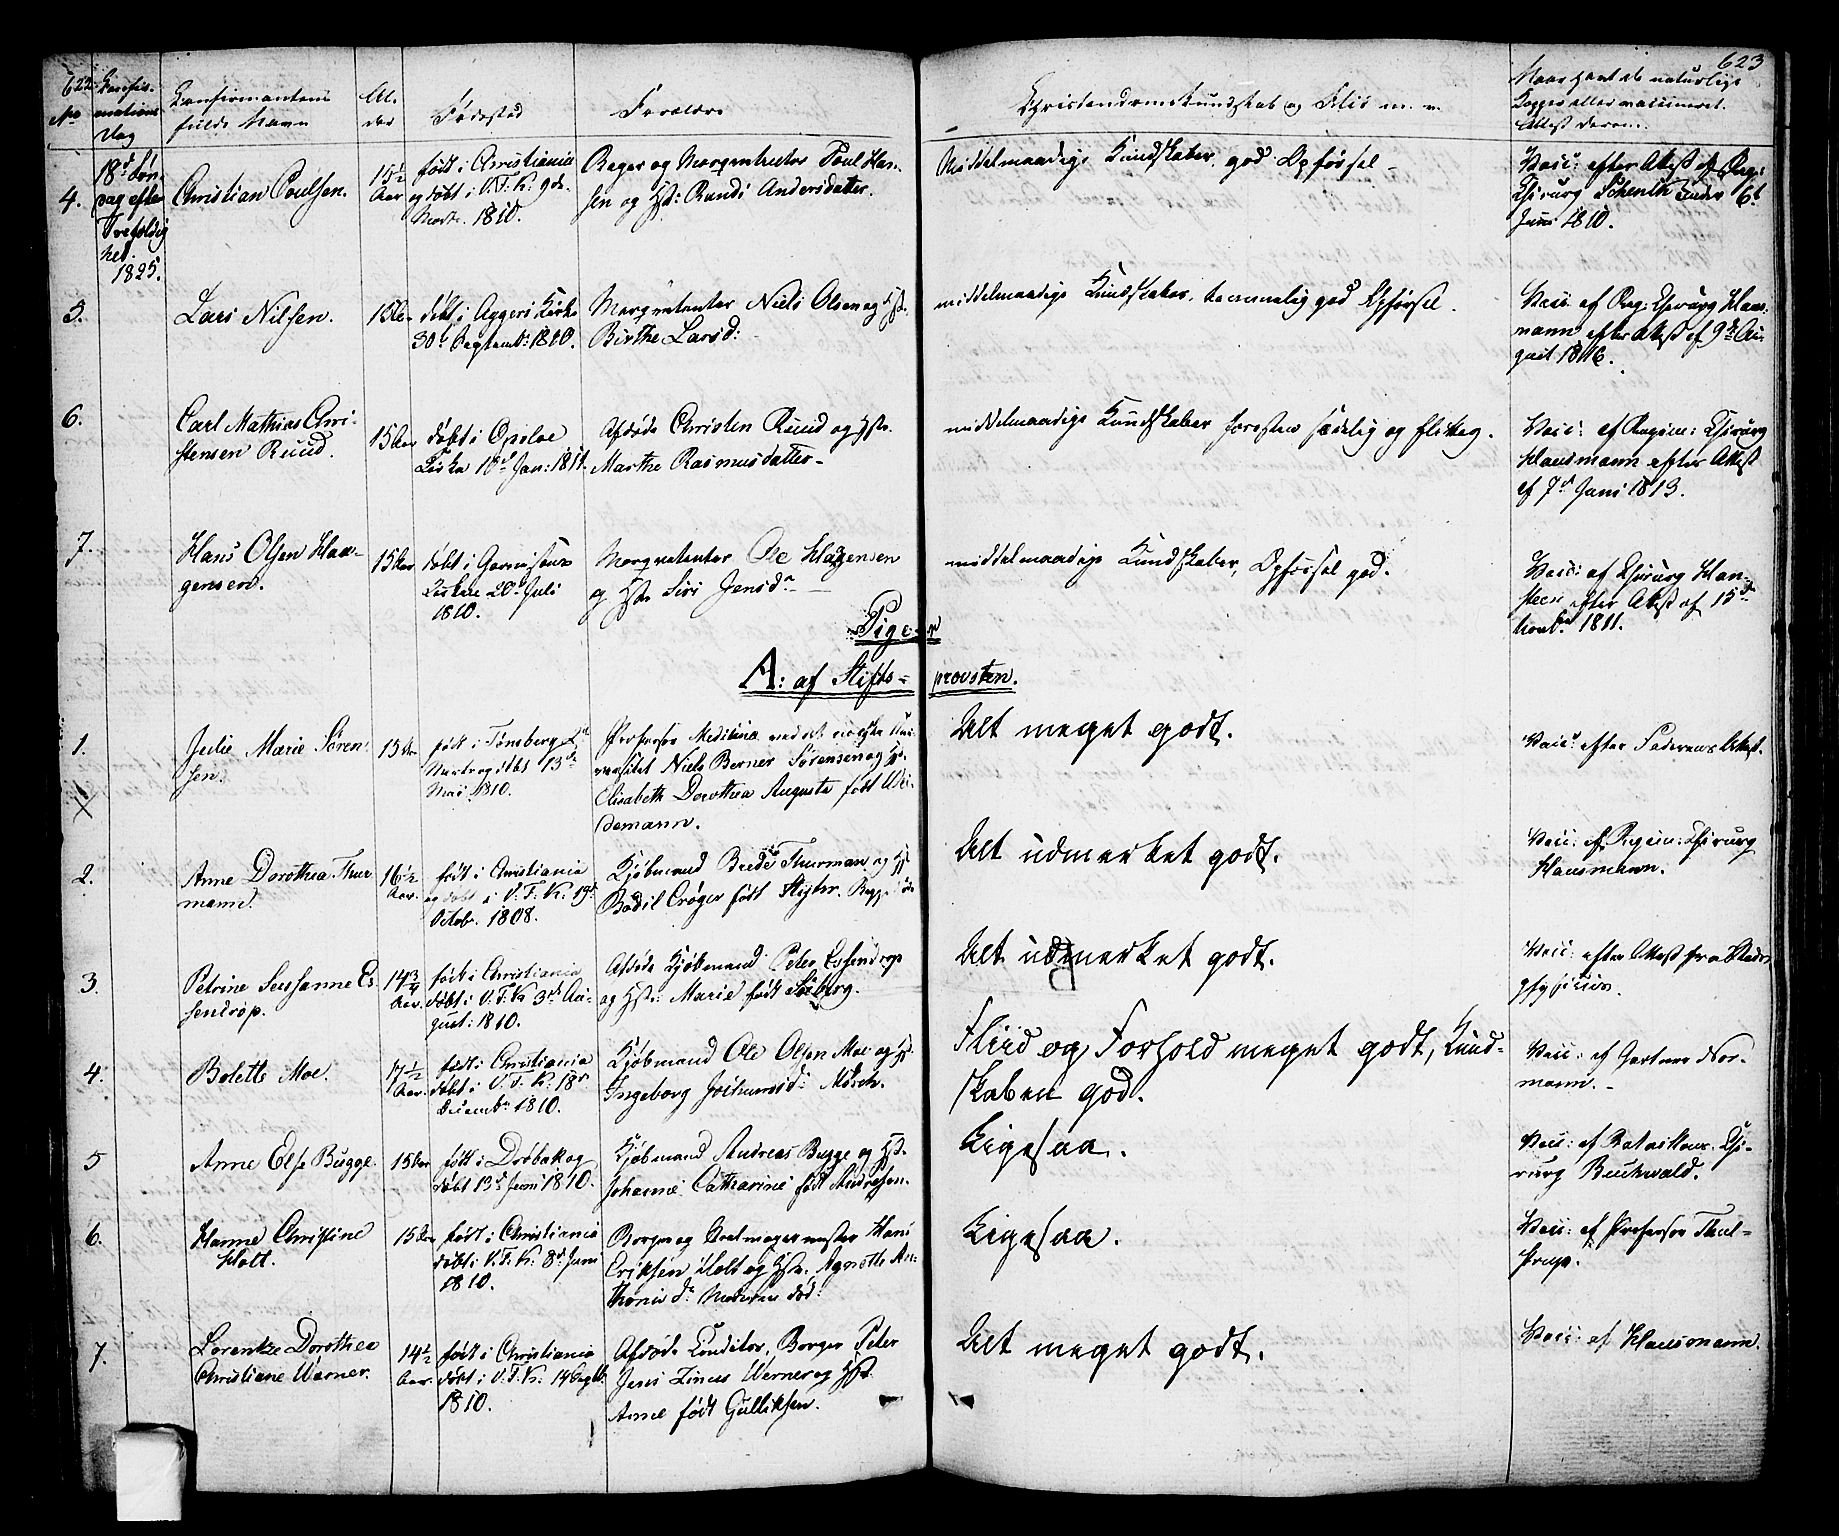 622
No
Confir-
mations
Dag
Confirmantens
fulde Navn
Al-
der
Fødested
Forældre
Christendomskundskab og Flid m. v.
623
Naar havt de naturlige
Kopper eller vaccineret.
Attest derom.
18d Søn-
dag efter
Trefoldig
hed.
1825.
4.
Christian Poulsen.
15½
Aar
født i Christiania
og døbt i V. F. K. 9de
Marts. 1810.
Bager og Marqvetenter Poul Han-
sen og Hst: Randi Andersdatter.
Middelmaadige Kundskaber, god Opførsel –
Vacc: efter Attest af Reg:
Chirurg Schenth under 6t
Juni 1810.
5.
Lars Nilsen.
15 Aar
døbt i Aggers Kirke
30d Septemb: 1810.
Marqvetenter Niels Olsen og Hst.
Birthe Larsd:
middelmaadige Kundskaber, temmelig god Opførsel.
Vacc af Reg: Chirurg Haus-
mann efter Attest af 9de Au-
gust 1816.
6.
Carl Mathias Chri-
stensen Ruud.
15 Aar
døbt i Opsloe
Kirke 10d Jan: 1811.
Afdøde Christen Ruud og Hst.
Marthe Rasmusdatter –
middelmaadige Kundskaber forresten sædelig og flittig.
Vacc: af Regim: Chirurg
Hausmann efter Attest
af 7d Juni 1813.
7.
Hans Olsen Haa-
gensen.
15 Aar
døbt i Garnisons
Kirken 20d Juli
1810.
Marqvetenter Ole Hagensen
og Hst. Siri Jensdr
middelmaadige Kundskaber, Opførsel god.
Vacc: af Chirurg Han-
steen efter Attest af 15d
Novbr. 1811.
Piger
A: af Stifts-provsten.
1.
Julie Marie Søren-
sen.
15 Aar
født i Tønsberg
Marts og døbt 13de
Mai 1810.
Professor Medicinæ ved det norske Uni-
versitet Niels Berner Sørensen og Hst.
Elisabeth Dorothea Augusta født Wei-
demann.
Alt meget godt.
Vacc: efter Faderens Attest.
X
2.
Anne Dorothea Thur-
mann.
16½
Aar.
født i Christiania
og døbt i V. F. K. 19d
Octobr. 1808.
Kjøbmand Brede Thurman og Hst
Bodil Crøger født Stybr.
Alt udmærket godt.
Vacc: af Regim: Chirurg
Hausmann.
3.
Petrine Susanne Es-
sendrop.
14¾
Aar.
født i Christiania
døbt i V. F. K 3d Au-
gust: 1810.
Afdøde Kjøbmand Peter Essendrop
og Hst: Marie født Seeberg.
Alt udmærket godt.
Vacc: efter Attest fra Stads
physicus.
4.
Bolette Moe.
14½
Aar.
født i Christiania
døbt i V. F. K. 18d
Decembr 1810.
Kjøbmand Ole Olsen Moe og Hst.
Ingeborg Jochumsd: Mørch.
Fliid og Forhold meget godt, Kund-
skaben god.
Vacc: af Gartner Nor-
mann. –
5
Anne Else Bugge.
15 Aar
født i Drøbak og
døbt 13d Juni 1810.
Kjøbmand Andreas Bugge og Hst.
Johanne Catharine født Andresen.
Ligesaa.
Vacc: af Batallions Chi-
rurg Buchwald.
6.
Hanne Christine
Holt.
15 Aar
født i Christiania
døbt i V. F. K. 8d Juni
1810.
Borger og Stolmagermester Hans
Eriksen Holt og Hst. Agnethe An-
thonisdr Moderen død.
Ligesaa.
Vacc: af Professor Thul-
strup.
7.
Lorentze Dorothea
Christiane Warner.
14½
Aar.
født i Christiania
døbt i V. F. K. 14 Septbr
1810.
Afdøde Conditor, Borger Peter
Jens Werner og Hst.
Anne født Gulliksen.
Alt meget godt.
Vacc: af Hausmann.